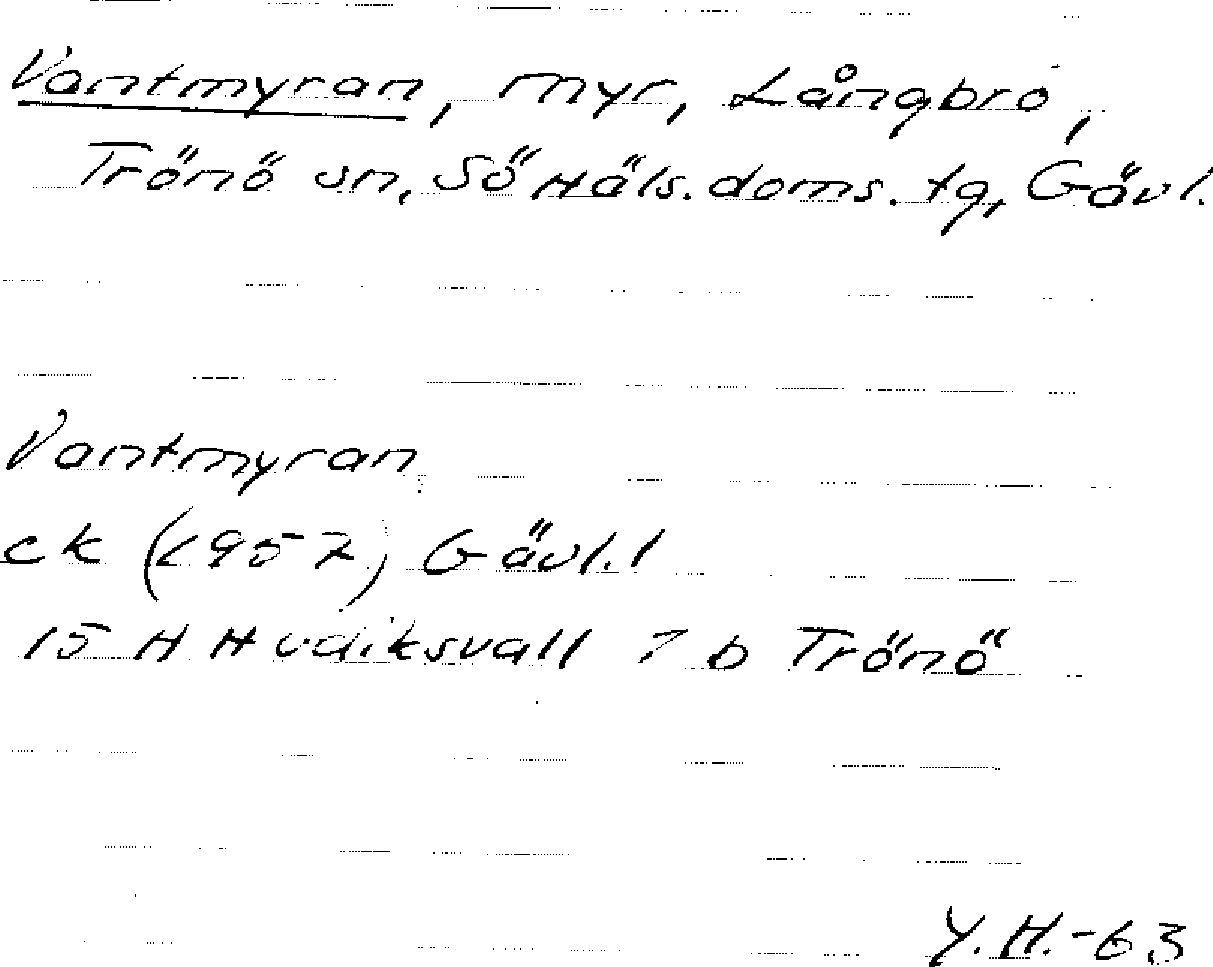 Vantmyran, myr, Långbro,
Trönö sn, Sö Häls. doms. tg, Gävl.
Vantmyran
ek (1957) Gävl. l
15 H Hudiksvall 7 b Trönö
Y. H. -63